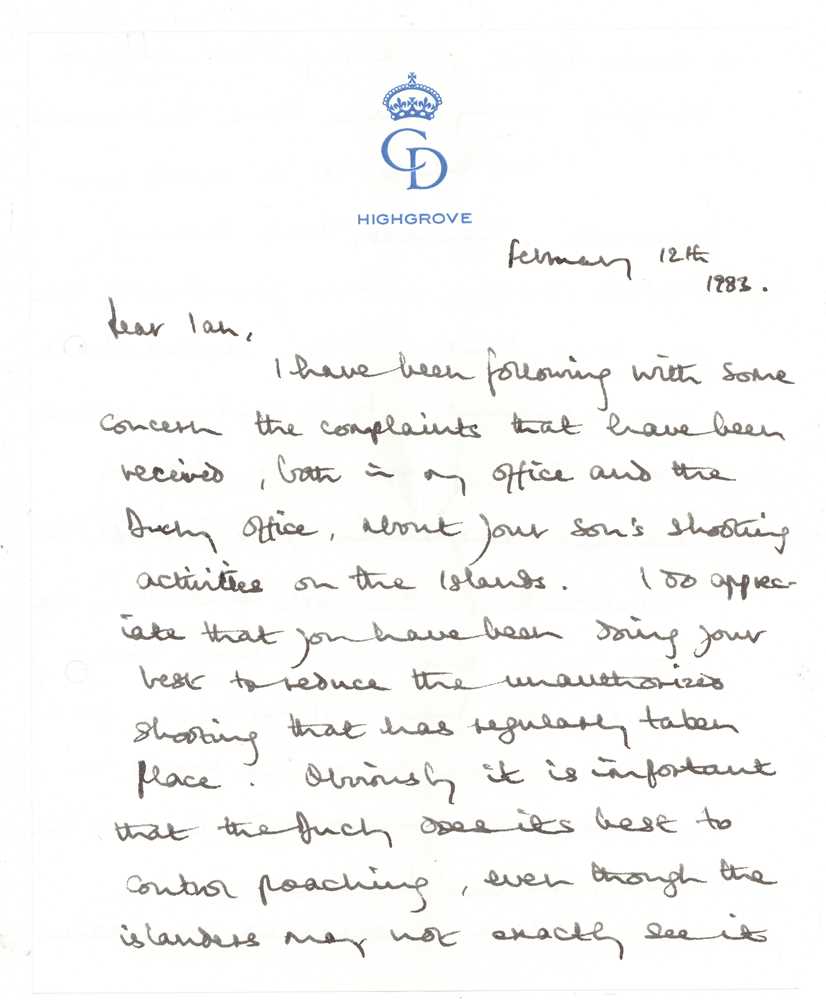 CD
HIGHGROVE
February 12th
1983.
Dear Ian,
I have been following with some
concern the complaints that have been
received, both in my office and the
Duchy office, about your son's shooting
activities on the Islands. I do apprec-
iate that you have been doing your
best to reduce the unauthorized
shooting that has regularly taken
place. Obviously it is important
that the Duchy does its best to
control poaching, even though the
islanders may not exactly see it